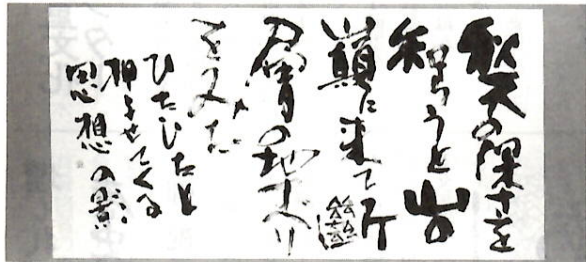 秋天の深さを
知らうと岩の
巓に来て片
層の地すべり
をみた
ひたひたと
押よせてくる
思想の影